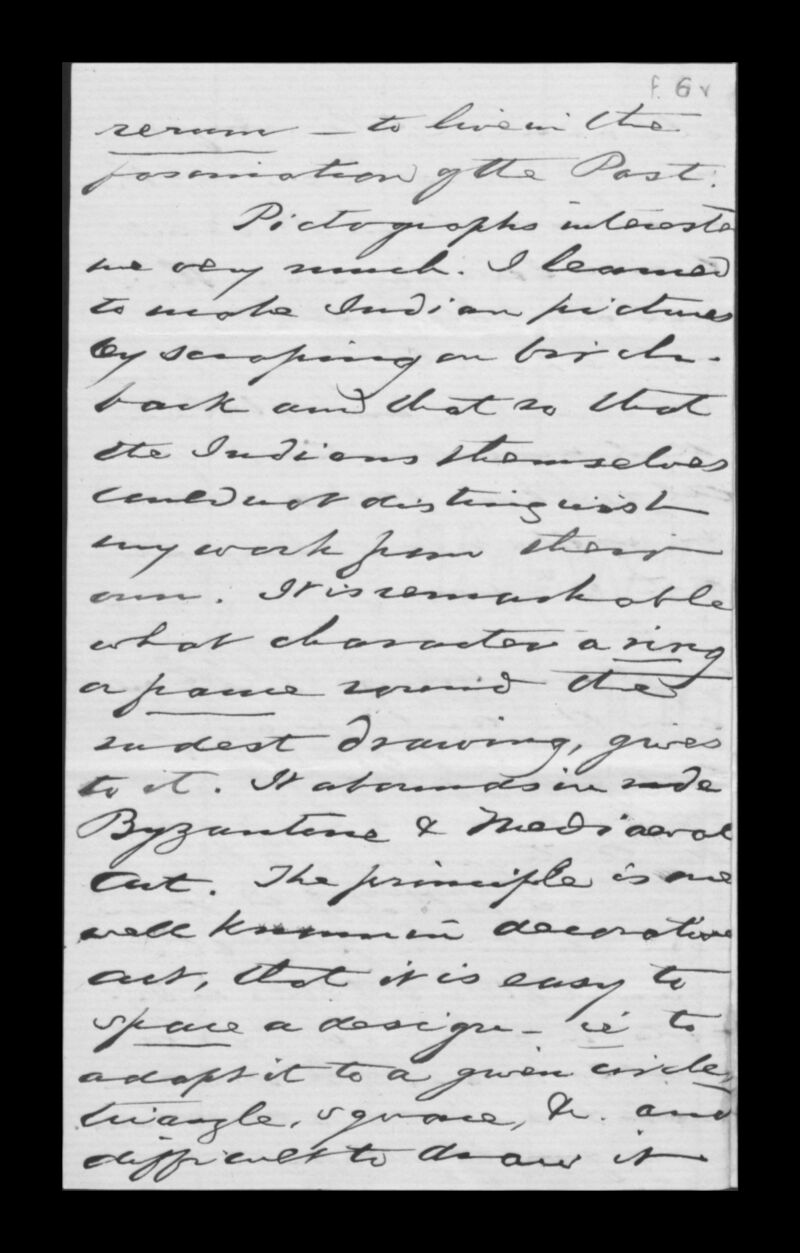 f. 6 v
rerum — to live in the
fascination of the Past.
Pictographs interested
me very much. I learned
to make Indian pictures
by scraping on birch-
bark and that so that
the Indians themselves
could not distinguish
my work from their
own. It is remarkable
what character a ring
a frame round the
rudest drawing, gives
to it. It abounds in rude
Byzantine & Mediaeval
Art. The principle is one
well known in decorative
art, that it is easy to
space a design — ie to
adapt it to a given circle,
triangle, square, &c. and
difficult to draw it